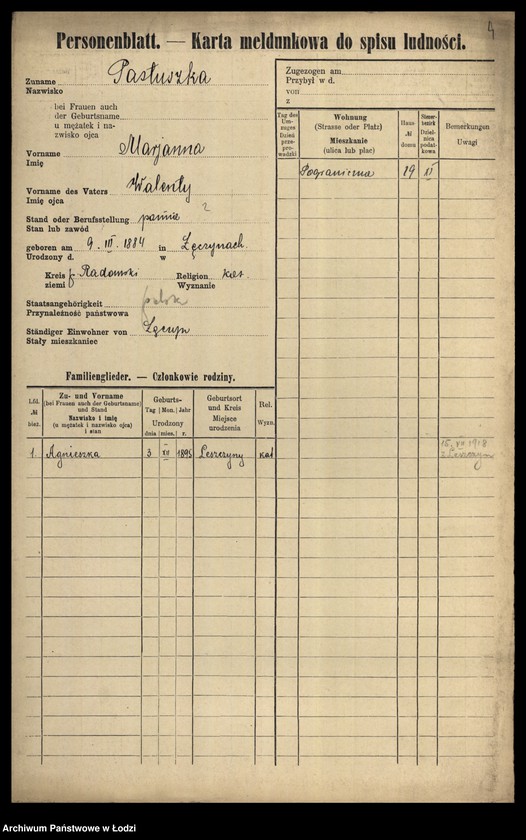 4
Personenblatt. — Karta meldunkowa do spisu ludności.
Zuname Pastuszka
Nazwisko
bei Frauen auch
der Geburtsname
u mężatek i na-
zwisko ojca
Vorname Marjanna
Imię
Vorname des Vaters Walenty
Imię ojca
Stand oder Berufsstellung panna
Stan lub zawód
geboren am 9. III. 1884 in
Urodzony d. w
Kreis Radomski Religion kat.
ziemi Wyznanie
Staatsangehörigkeit polsk
Przynależność państwowa
Ständiger Einwohner von
Stały mieszkaniec
Zugezogen am
Przybył w d.
von
z
Tag des Um-zuges Dzień prze-pro-wadzki
Wohnung (Strasse oder Platz) Mieszkanie (ulica lub plac)
Haus- № domu
Steuer-bezirk Dziel-nica podat-kowa
Bemerkungen Uwagi
Pograniczna 19 XI
Familienglieder. — Członkowie rodziny.
Lfd. № bież.
Zu- und Vorname (bei Frauen auch der Geburtsname) und Stand Nazwisko i imię (u mężatek i nazwisko ojca) i stan
Geburts- Tag Mon. Jahr Urodzony dnia mies. r.
Geburtsort und Kreis Miejsce urodzenia
Rel. Wyzn.
1. Agnieszka 3 XII 1895 Leszczyny kat
15. VII 1918
Archiwum Państwowe w Łodzi